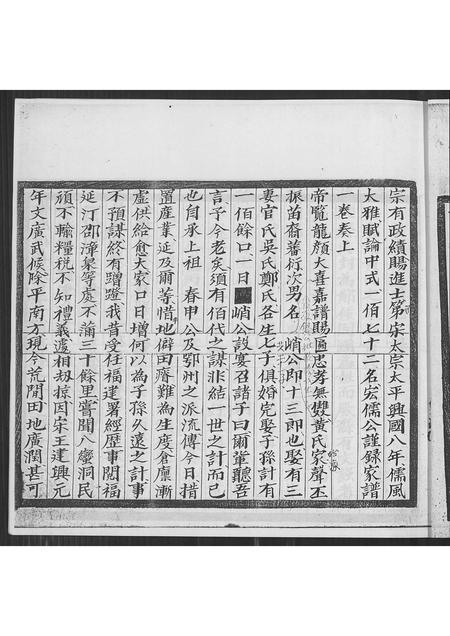 宗有政績賜進士第宋太宗太平興國八年儒風
大雅賦論中式一佰七十二名宏儒公謹録家譜
一卷奏上
帝覧龍顔大喜嘉譜賜匾忠孝無雙黄氏家聲丕
振苗裔蕃衍次男名峭公即十三郎也娶有三
妻官氏吳氏鄭氏各生七子俱婚完娶子孫計有
一佰餘口一日峭公設宴召諸子曰爾軰聽吾
言予今老矣須有佰代之謀非結一世之計而已
也自承上祖春申公及鄂州之派流傳今日措
置産業延及爾等惜地僻田瘠難為生度倉廪漸
虚供給愈大家口日增何以為子孫久遠之計事
不預謀終有蹭蹬我昔受任福建署經歷事閲福
延汀邵漳泉等處不蒲三十餘里嘗聞八蠻洞民
頑不輸糧税不知禮義遞相刼掠因宋王建興元
年文廣武候除平南方現今荒閒田地廣濶甚可